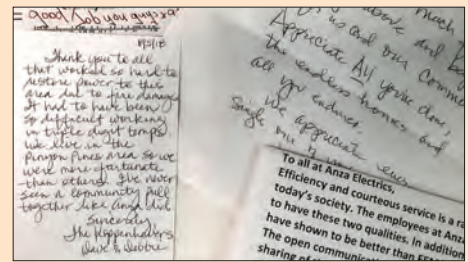 = good Job you guys
8/5/18
Thank you to all
that worked so hard to
restore power to this
area due to fire damage
It had to have been
so difficult working
in triple digit temps.
We live in the
Pinyon Pines area so we
were more fortunate
than others. I've never
seen a community pull
together like Anza did
Sincerely
The Poppenhavers
Dave & Debbie
much
above and
us and our comm
Appreciate All you've done,
the endless hours and
all you endured.
We appreciate
Single one of
To all at Anza Electrics,
Efficiency and courteous service is a ra
today's society. The employees at Anza
to have these two qualities. In addition
have shown to be better than
The open communicati
sharing of